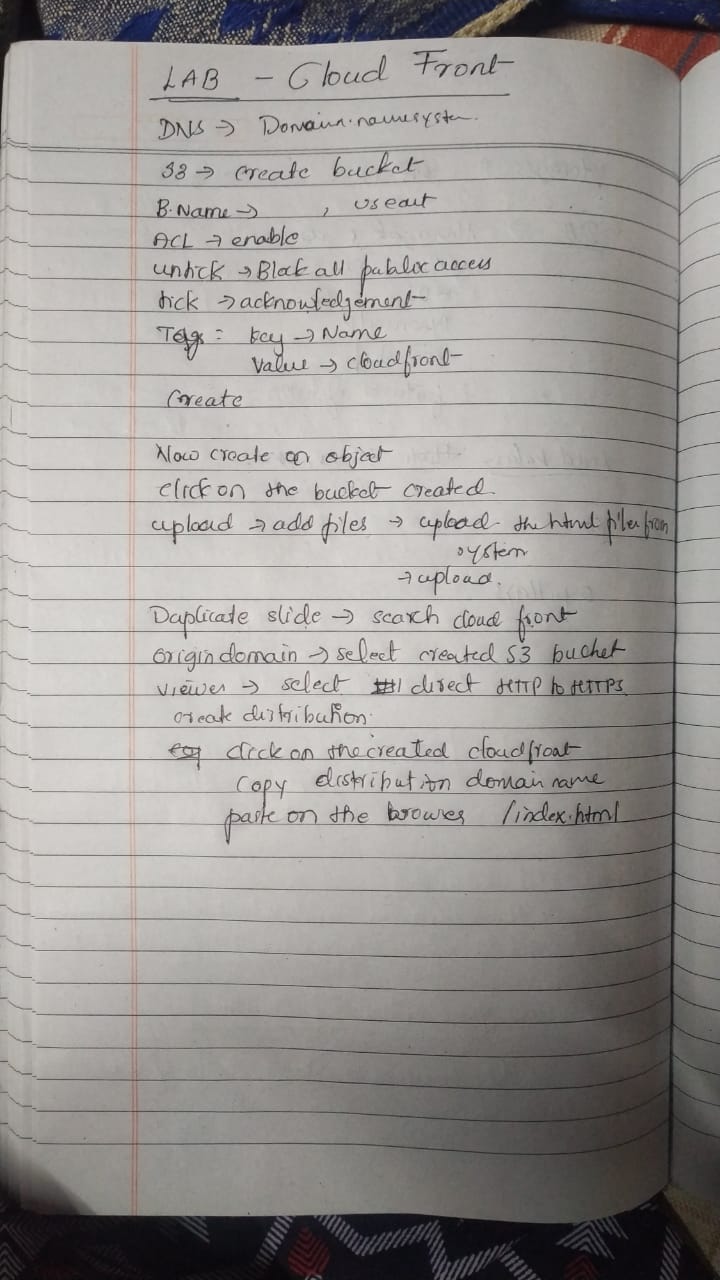 LAB - Cloud Front
DNS → Domain namesystem.
S3 → create bucket
B.Name → , us east
ACL → enable
untick → Block all public access
tick → acknowledgement
Tags: key → Name
Value → cloudfront
Create
Now create an object
click on the bucket created.
upload → add files → upload the html files from
system
→ upload.
Duplicate slide → search cloud front
Origin domain → select created S3 bucket
viewer → select direct HTTP to HTTPS
create distribution.
click on the created cloudfront
copy distribution domain name
paste on the browes /index.html